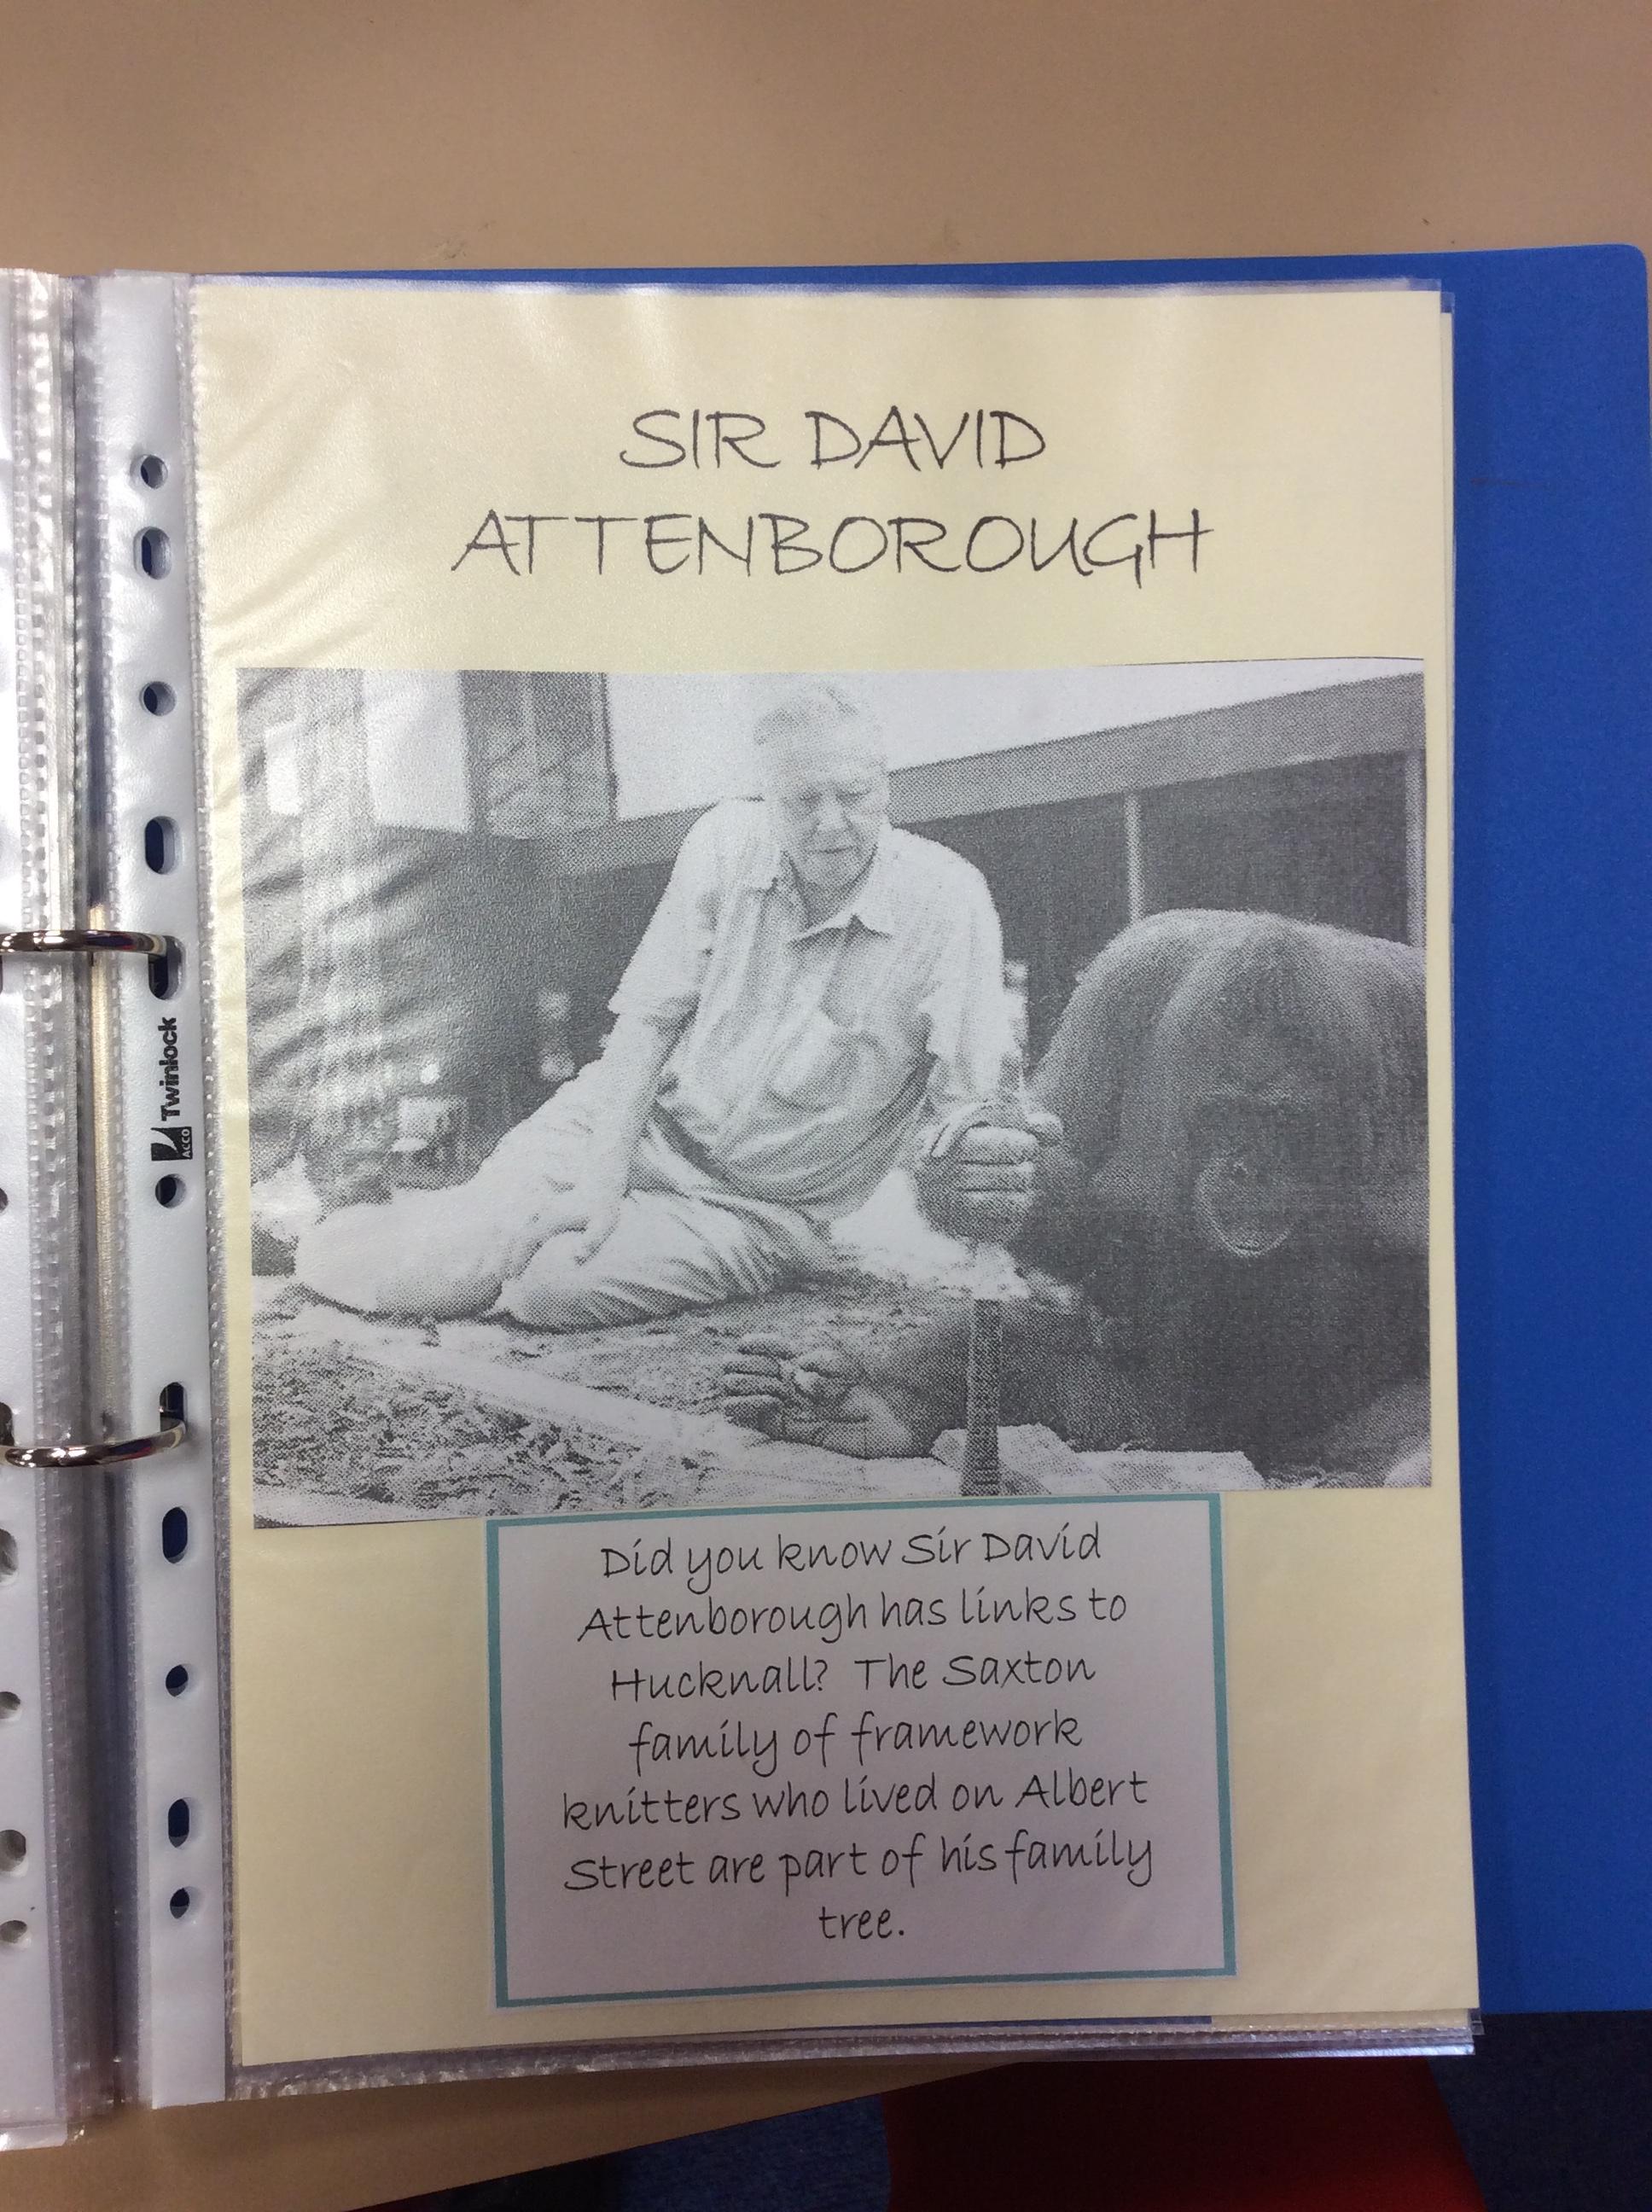 SIR DAVID
ATTENBOROUGH
Twinlock
ACCO
Did you know Sir David
Attenborough has links to
Hucknall? The Saxton
family of framework
knitters who lived on Albert
Street are part of his family
tree.